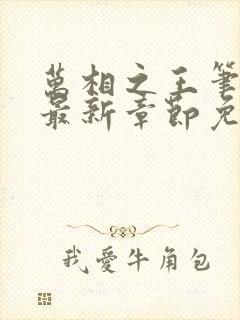 萬相之王筆
最新章節免
我愛牛角包